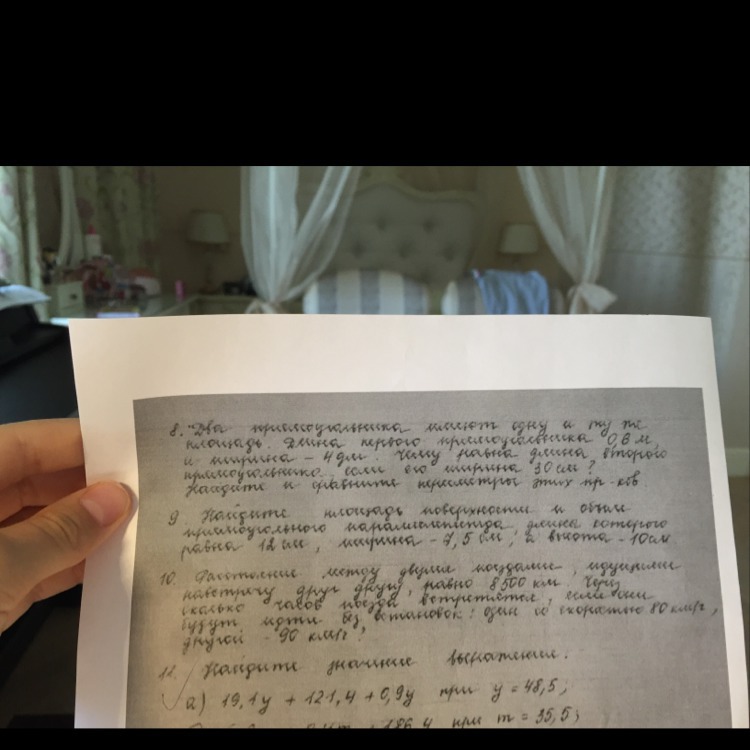 8. Два прямоугольника имеют одну и ту же
площадь. Длина первого прямоугольника 0,6 м,
и ширина - 4 дм. Чему равна длина второго
прямоугольника, если его ширина 30 см?
Найдите и сравните периметры этих пр-ков
9 Найдите площадь поверхности и объем
прямоугольного параллелепипеда, длина которого
равна 12 см, ширина - 7,5 см, а высота - 10 см
10. Расстояние между двумя поездами, идущими
навстречу друг другу, равно 8500 км. Через
сколько часов поезда встретятся, если они
будут идти без остановок: один со скоростью 80 км/ч,
другой - 90 км/ч?
11. Найдите значение выражения:
а) 19,1y + 121,4 + 0,9y при y = 48,5;
186,4 при m = 35,5;